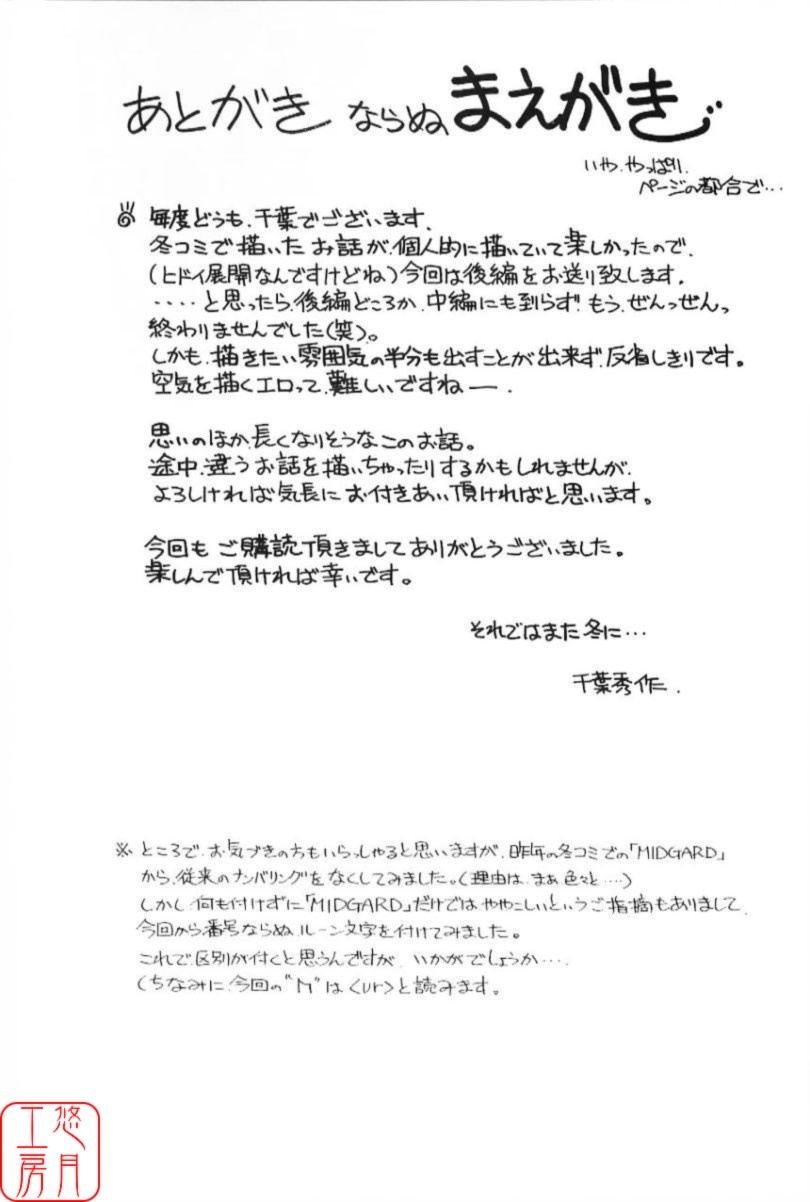 あとがき ならぬ、まえがき
いや、やっぱり、
ページの都合で…
毎度どうも、千葉でございます。
冬コミで描いた お話が、個人的に描いていて楽しかったので、
(ヒドイ展開なんですけどね)今回は後編をお送り致します。
‥‥と思ったら、後編どころか、中編にも到らず、もう、ぜんっぜんっ
終わりませんでした(笑)。
しかも、描きたい雰囲気の半分も出すことが出来ず、反省しきりです。
空気を描くエロって、難しいですねー。
思いのほか、長くなりそうなこのお話。
途中、違うお話を描いちゃったりするかもしれませんが、
よろしければ気長に お付きあい頂ければと思います。
今回も ご購読頂きまして ありがとうございました。
楽しんで頂ければ幸いです。
それではまた冬に…
千葉秀作.
※ ところで、お気づきの方もいらっしゃると思いますが、昨年の冬コミでの「MIDGARD」
から、従来のナンバリングをなくしてみました。(理由は、まぁ色々と‥‥)
しかし、何も付けずに「MIDGARD」だけでは ややこしいというご指摘もありまして、
今回から番号ならぬ、ルーン文字を付けてみました。
これで、区別が付くと思うんですが、いかがでしょうか‥‥
(ちなみに、今回の"ᚢ"は<ur>と読みます。
悠月
工房